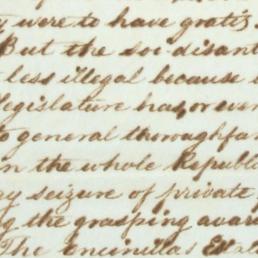 were to have gratis
But the soi-disant
less illegal because
legislature has, or ever
to general thoroughfa
in the whole Republi
seizure of private
the grasping avar
The encinillas Esta